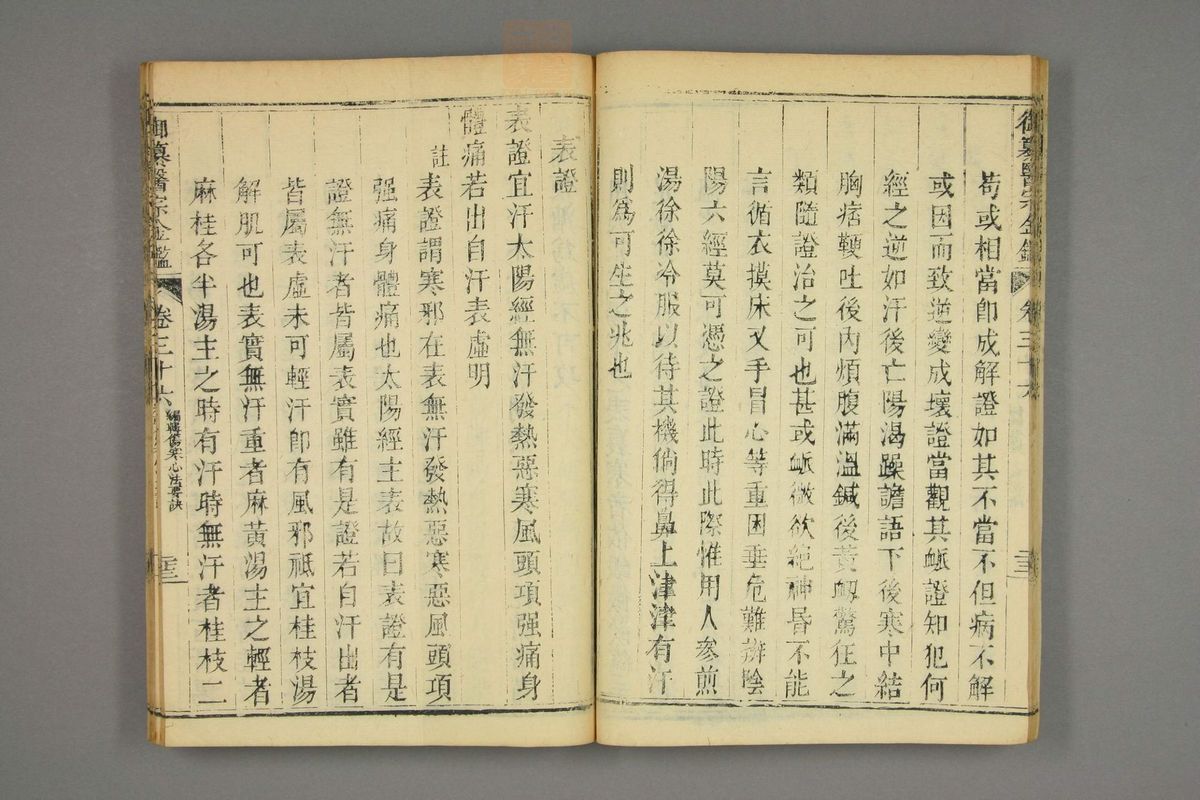 苟或相當卽成解證如其不當不但病不解
或因而致逆變成壞證當觀其衇證知犯何
經之逆如汗後亡陽渴躁譫語下後寒中結
胸痞鞕吐後內煩腹滿溫鍼後黃衂驚狂之
類隨證治之可也甚或衇微欲絕神昬不能
言循衣摸床叉手冒心等重困垂危難辨陰
陽六經莫可憑之證此時此際惟用人參煎
湯徐徐冷服以待其機倘得鼻上津津有汗
則爲可生之兆也
表證
表證宜汗太陽經無汗發熱惡寒風頭項强痛身
體痛若出自汗表虛明
註表證謂寒邪在表無汗發熱惡寒惡風頭項
强痛身體痛也太陽經主表故曰表證有是
證無汗者皆屬表實雖有是證若自汗出者
皆屬表虛未可輕汗卽有風邪祗宜桂枝湯
解肌可也表實無汗重者麻黃湯主之輕者
麻桂各半湯主之時有汗時無汗者桂枝二
御纂醫宗金鑑 卷三十六 編輯傷寒心法要訣